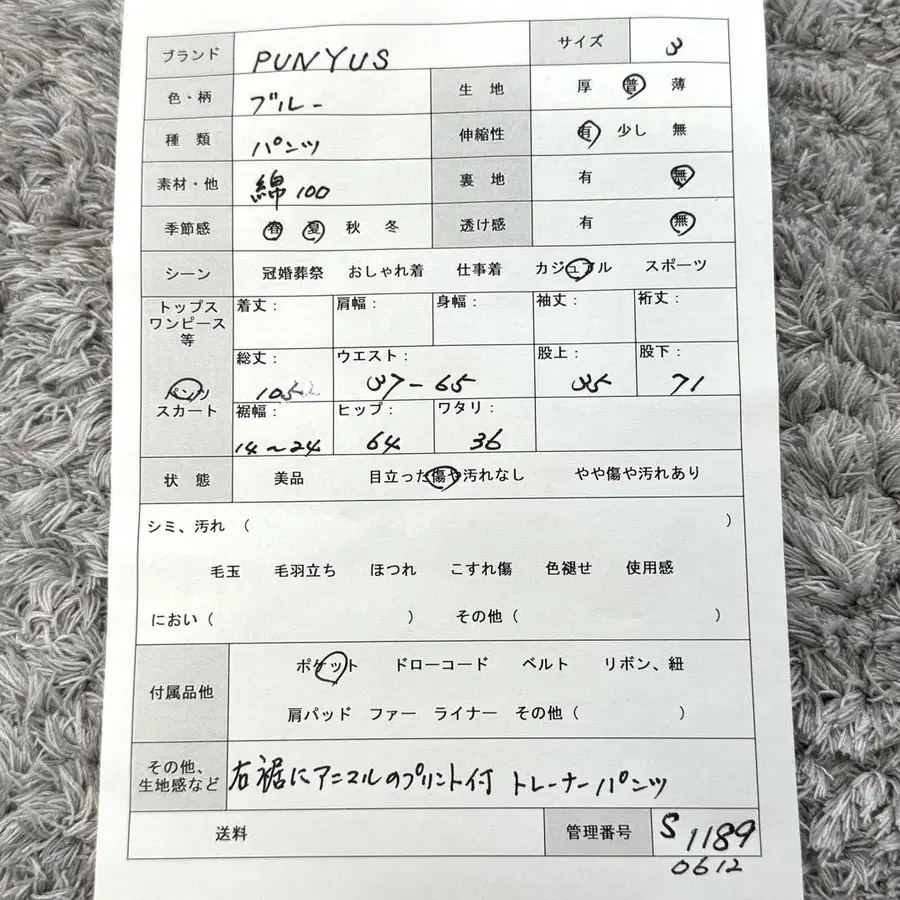 ブランド PUNYUS サイズ 3
色・柄 ブルー 生地 厚 普 薄
種類 パンツ 伸縮性 有 少し 無
素材・他 綿100 裏地 有 無
季節感 春 夏 秋 冬 透け感 有 無
シーン 冠婚葬祭 おしゃれ着 仕事着 カジュアル スポーツ
トップス
ワンピース
等
着丈: 肩幅: 身幅: 袖丈: 裄丈:
パンツ
スカート
総丈: ウエスト: 股上: 股下:
105 37-65 35 71
裾幅: ヒップ: ワタリ:
14〜24 64 36
状態 美品 目立った傷や汚れなし やや傷や汚れあり
シミ、汚れ ( )
毛玉 毛羽立ち ほつれ こすれ傷 色褪せ 使用感
におい ( ) その他 ( )
付属品他 ポケット ドローコード ベルト リボン、紐
肩パッド ファー ライナー その他 ( )
その他、
生地感など
右裾にアニマルのプリント付 トレーナーパンツ
送料 管理番号 S1189
0612